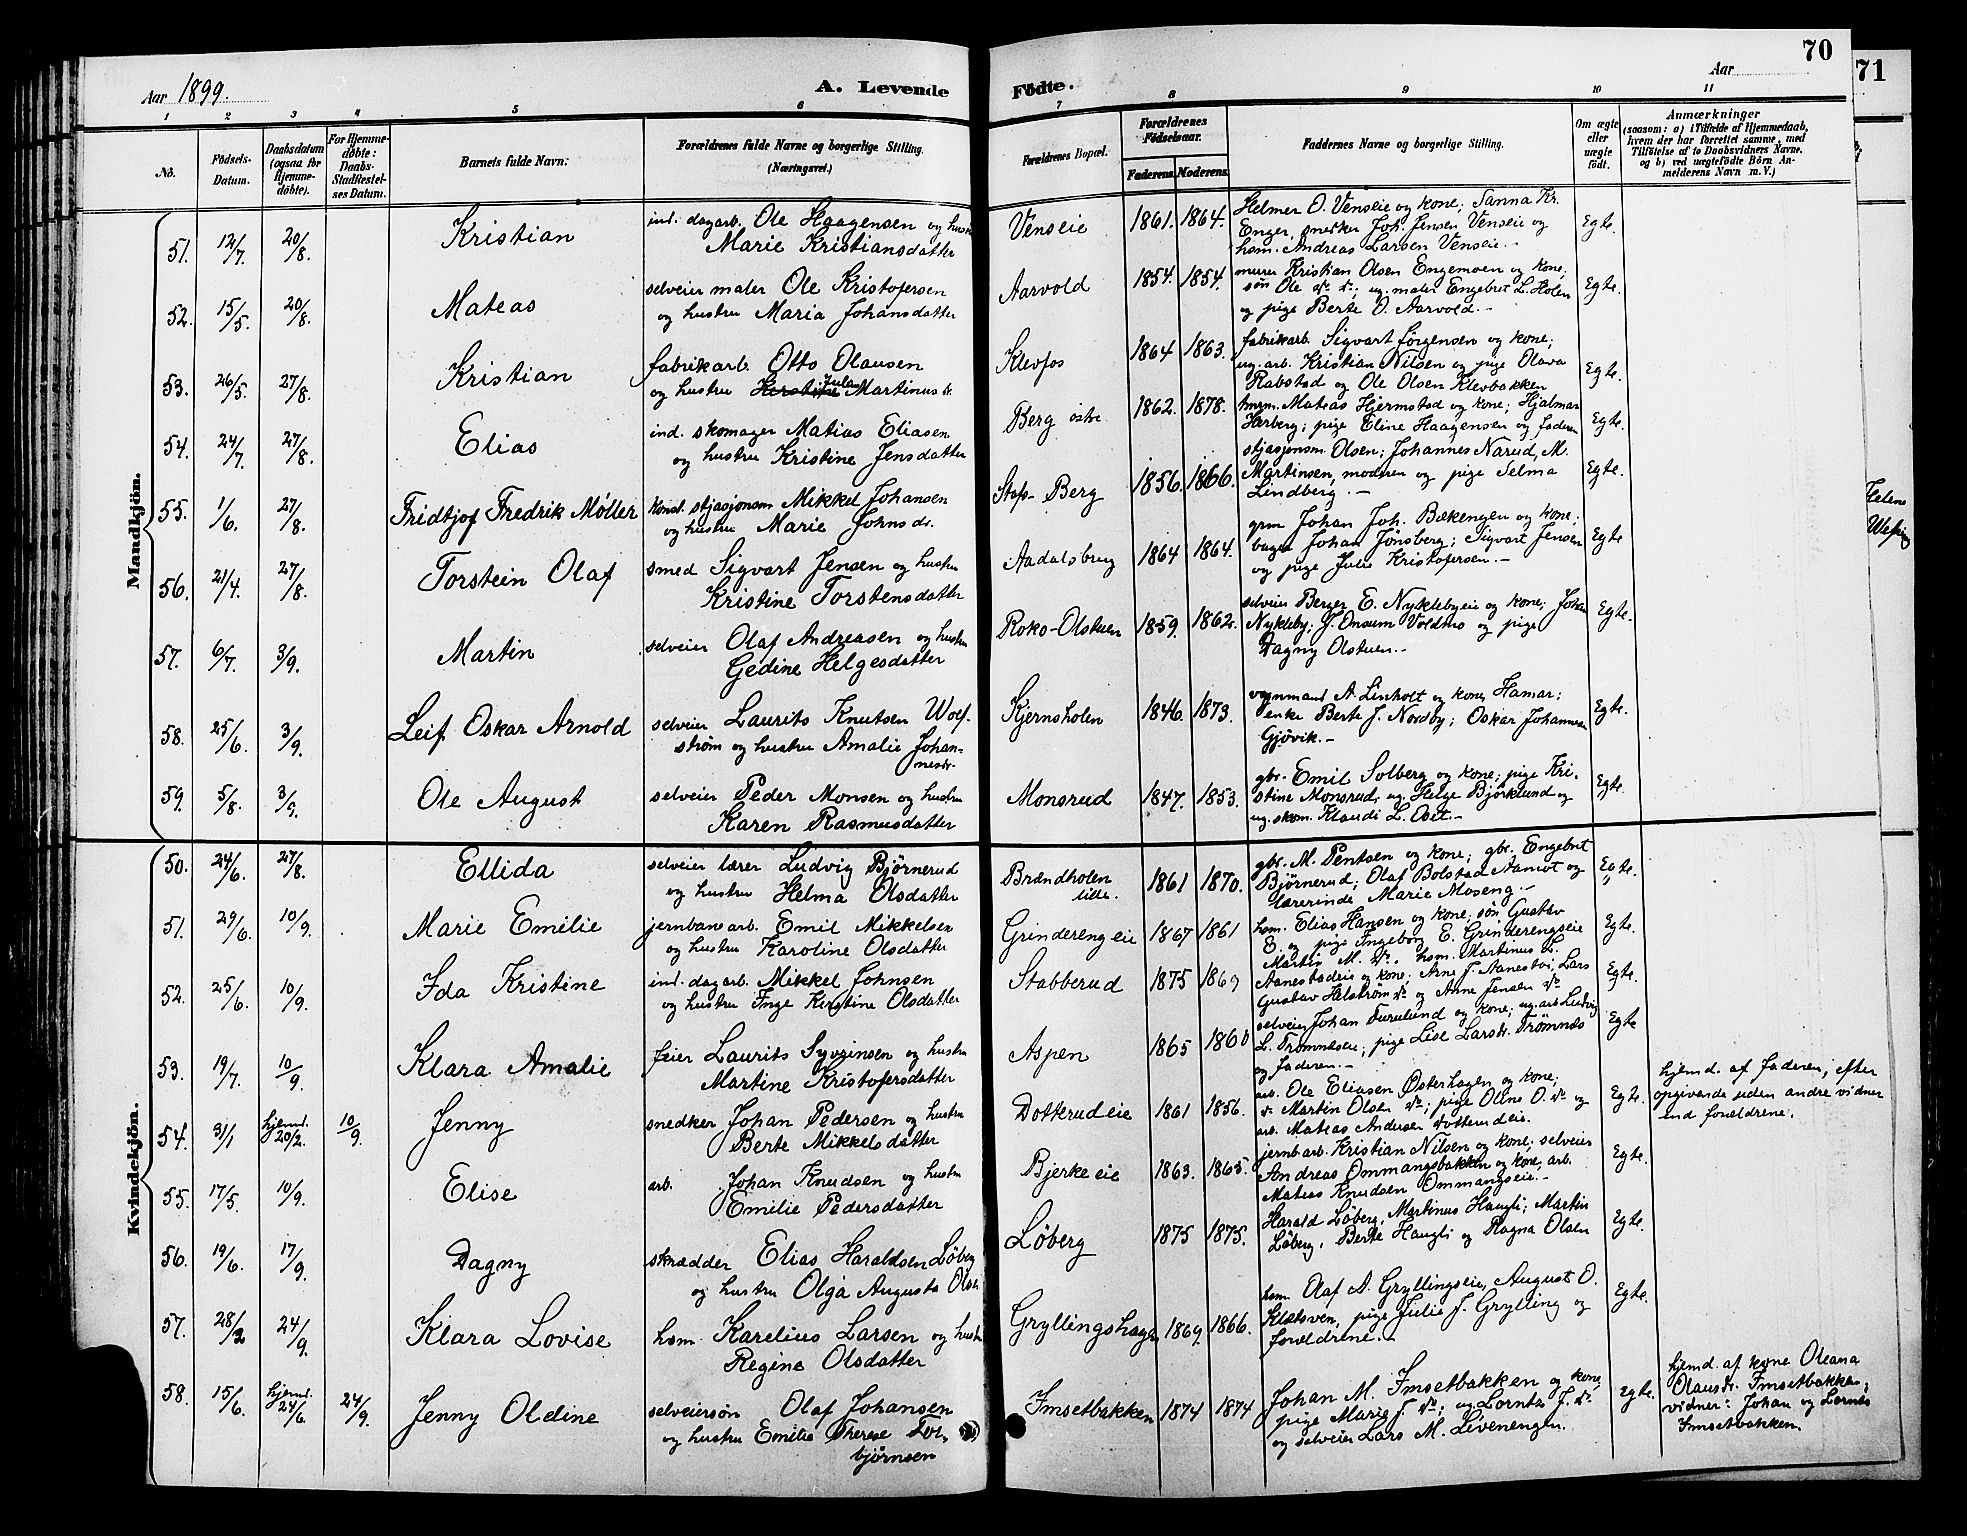 70
71
Aar 1899.
A. Levende
Födte.
Aar
1 2 3 4 5 6 7 8 9 10 11
No.
Födsels-Datum.
Daabsdatum (ogsaa for Hjemmedöbte).
For Hjemmedöbte: Daabs-Stadfestelses Datum.
Barnets fulde Navn:
Forældrenes fulde Navne og borgerlige Stilling. (Næringsvei.)
Forældrenes Bopæl.
Forældrenes Födselsaar.
Faderens. Moderens.
Faddernes Navne og borgerlige Stilling.
Om ægte eller uægte födt.
Anmærkninger
(saasom: a) i Tilfælde af Hjemmedaab,
hvem der har forrettet samme, med
Tilföielse af to Daabsvidners Navne,
og b) ved uægtefödte Börn An-
melderens Navn m. V.)
Mandkjön.
51. 12/7. 20/8. Kristian
ind. dagarb. Ole Haagensen og hustru
Marie Kristiansdatter
Venseie 1861. 1864.
Helmer O. Venseie og kone; Sanna Kr.
Enger, snedker Joh. Jensen Venseie og
hsm. Andreas Larsen Venseie.-
Egte.
52. 15/5. 20/8. Mateas
selveier maler Ole Kristofersen
og hustru Maria Johansdatter
Aarvold 1854. 1854.
murer Kristian Olsen Engemoen og kone;
sön Ole do do; ug. maler Engebret L. Holen
og pige Berte O. Aarvold.-
Egte.
53. 26/5. 27/8. Kristian
fabrikarb. Otto Olausen
og hustru Jula Martinusdr.
Klevfos 1864 1863.
fabrikarb. Sigvart Jørgensen og kone;
ug. arb. Kristian Nilsen og pige Olava
Rabstad og Ole Olsen Klevbakken
Egte.
54. 24/7. 27/8. Elias
ind. skomager Matias Eliasen
og hustru Kristine Jensdatter
Berg östre 1862. 1878.
Mateas Hjermstad og kone; Hjalmar
Harberg; pige Eline Haagensen og faderen
Egte.
55. 1/6. 27/8. Fridtjof Fredrik Møller
konst. stjasjonsm Mikkel Johansen
og hustru Marie Johnsdr.
Berg 1856. 1866.
stjasjonsm Olsen; Johannes Narud, M.
Martinsen, moderen og pige Selma
Lindberg.-
Egte.
56. 21/4. 27/8. Torstein Olaf
smed Sigvart Jensen og hustru
Kristine Torstensdatter
Aadalsbrug 1864 1864.
grm Johan Joh. Bækengen og kone;
bager Johan Jönsberg; Sigvart Jensen
og pige Julie Kristofersen.-
Egte
57. 6/7. 3/9. Martin
selveier Olaf Andreasen og hustru
Gedine Helgesdatter
Roko-Olstuen 1859. 1862.
selveier Berger E. Nyklebyeie og kone; Johan
Nykleby; J. Onsum Voldmo og pige
Dagny Olstuen.-
Egte.
58. 25/6. 3/9. Leif Oskar Arnold
selveier Laurits Knutsen Wolf-
strøm og hustru Amalie Johan-
nesdr.
Kjernsholen 1846. 1873.
vognmand A. Linholt og kone, Hamar;
enke Berte J. Nordby; Oskar Johannesen
Gjövik.-
Egte.
59. 5/8. 3/9. Ole August
selveier Peder Monsen og hustru
Karen Rasmusdatter
Monsrud 1847. 1853.
gbr. Emil Solberg og kone; pige Kri-
stine Monsrud; ug. Helge Björklund og
ug. skom. Klaudi L. Obet.-
Egte.
Kvindekjön.
50. 24/6. 27/8. Ellida
selveier lærer Ludvig Bjørnerud
og hustru Helma Olsdatter
Brændholen lille. 1861 1870.
gbr. M. Pentsen og kone; gbr. Engebret
Björnerud; Olaf Bolstad Aamot og
lærerinde Marie Moseng.-
Egte.
51. 29/6. 10/9. Marie Emilie
jernbanearb. Emil Mikkelsen
og hustru Karoline Olsdatter
Grinderengeie 1867 1861
hsm. Elias Hansen og kone; sön Gustav
E. og pige Ingeborg E. Grinderengseie
Martin M. do.
Egte.
52. 25/6. 10/9. Ida Kristine
ind. dagarb. Mikkel Johnsen
og hustru Inge Kirstine Olsdatter
Stabberud 1875 1869
hsm. Martinus L.
Aanestadeie og kone; Arne J. Aanestöi; Lars
Gustav Helström do og Anne Jensen do
Egte.
53. 19/7. 10/9. Klara Amalie
feier Laurits Syversen og hustru
Martine Kristofersdatter
Aspen 1865 1860
selveier Johan Furulund og kone; ug. arb. Ludvig
L. Trömneseie; pige Lise Larsdr. Trömnes
og faderen.-
Egte
54. 31/1 hjemd. 20/2. 10/9. Jenny
snedker Johan Pedersen og hustru
Berte Mikkelsdatter
Dotterudeie 1861 1856.
arb. Ole Eliasen Østerhagen og kone;
do Martin Olsen do; pige Oline O. do og
arb. Mateas Andersen Dotterudeie.
Egte.
hjemd. af faderen, efter
opgivende uden andre vidner
end foreldrene.
55. 17/5. 10/9. Elise
arb. Johan Knudsen og hustru
Emilie Pedersdatter
Bjerkeeie 1863. 1865.
jernbarb. Kristian Nilsen og kone; selveier
Andreas Ommangsbakken og kone; arb.
Mateas Knudsen Ommangseie.-
Egte.
56. 19/6. 17/9. Dagny
skrædder Elias Haraldsen Löberg
og hustru Olga Augusta Olsen
Löberg 1875 1875.
Harald Löberg, Martinus Haugli; Martin
Löberg, Berte Haugli og Ragna Olsen
Egte.
57. 28/2 24/9. Klara Lovise
hsm. Karelius Larsen og hustru
Regine Olsdatter
Gryllingshagen 1869. 1866.
hsm Olaf A. Gryllingseie, August O.
Kletsven, pige Julie J. Grylling og
foreldrene.-
Egte.
58. 15/6. hjemd. 24/6. 24/9. Jenny Oldine
selveiersön Olaf Johansen
og hustru Emilie Therese Tor-
bjørnsen
Imsetbakken 1874 1874
Johan M. Imsetbakken og kone,
pige Marie J. do; ug. Lorntz J. do
og selveier Lars M. Livenengen.
Egte.
hjemd. af kone Oleana
Olausdr. Imsetbakken;
vidner: Johan og Lornts
Imsetbakken.